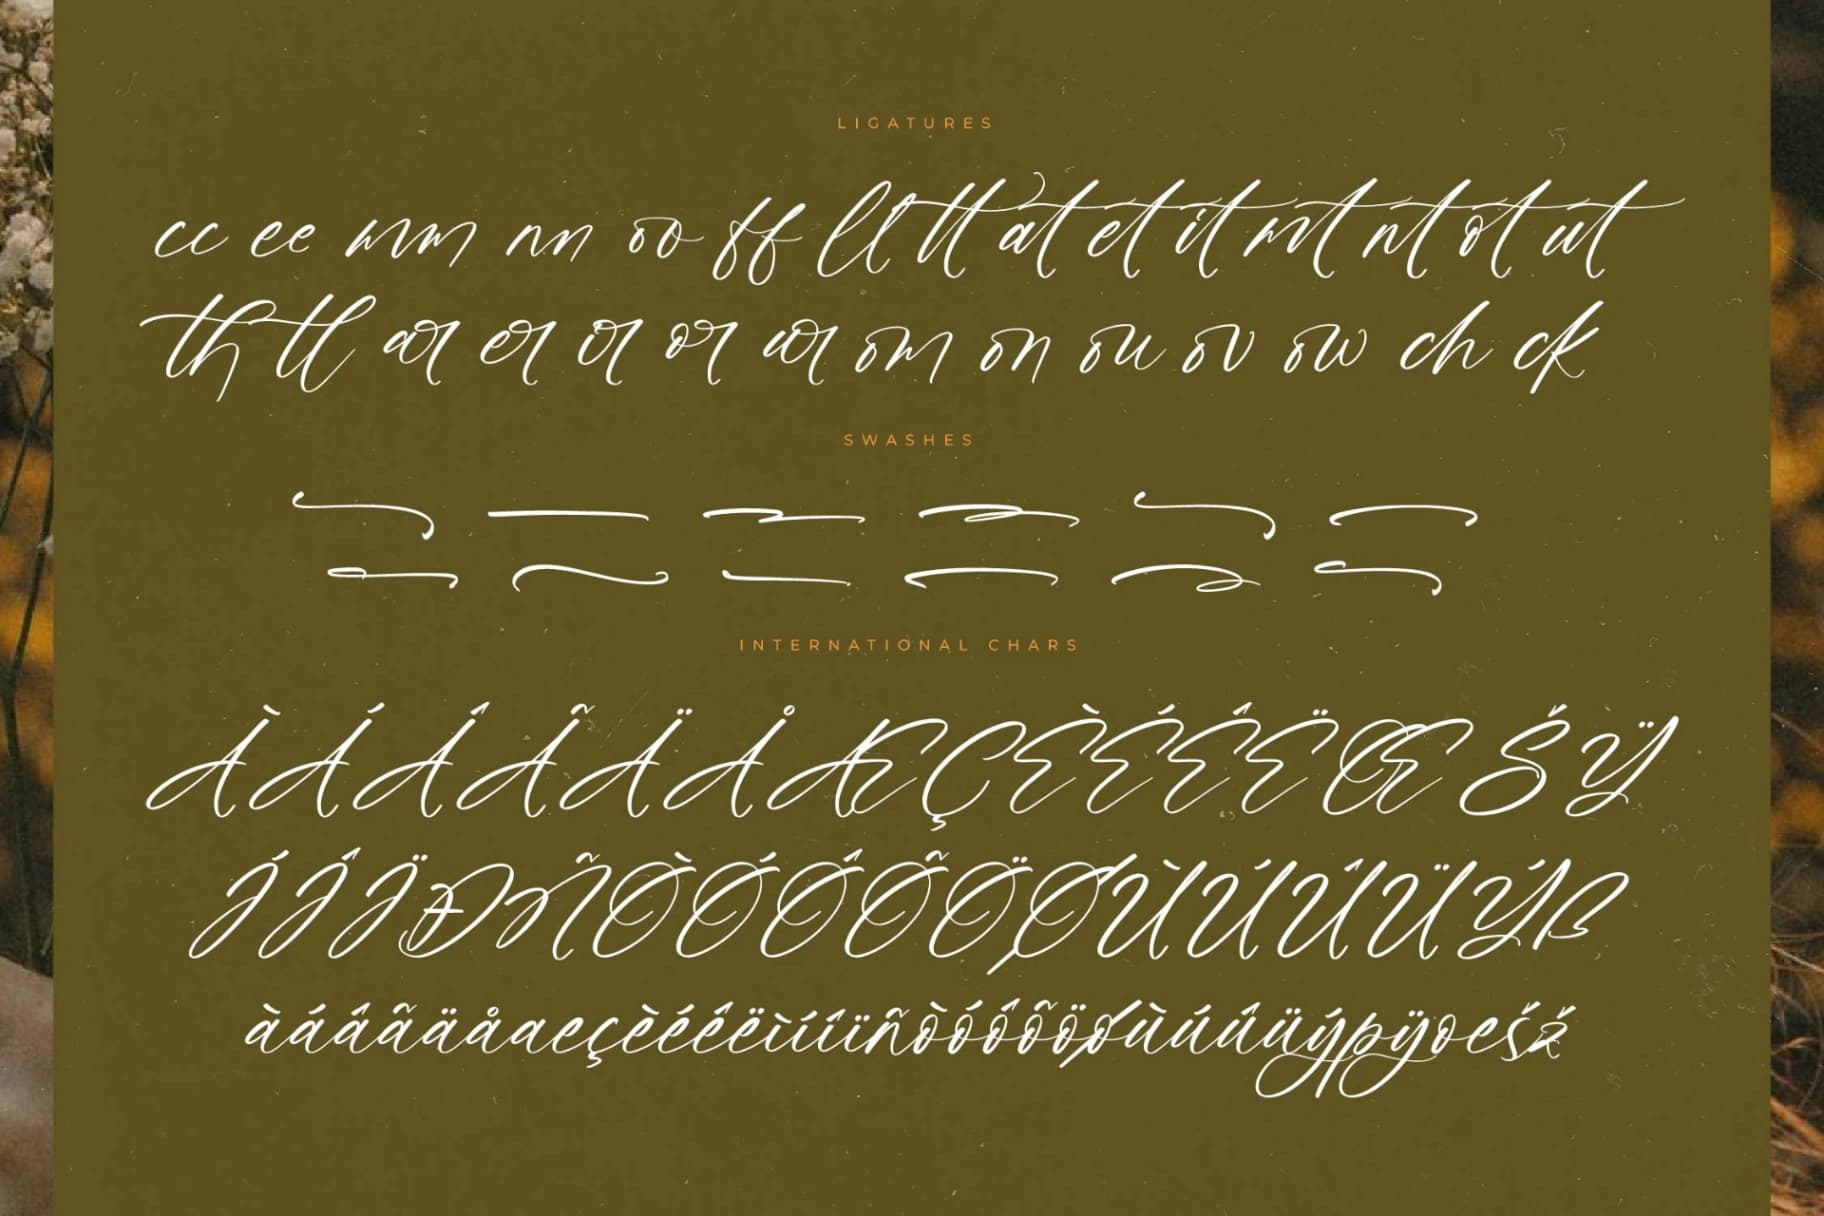 LIGATURES
cc ee mm nn oo ff lt tt at et it rt nt ot ut
th tl ar er ir or ur om on ou ov ow ch ck
SWASHES
INTERNATIONAL CHARS
À Á Â Ã Ä Å Æ Ç È É Ê Ë Œ Š Ÿ
Í Î Ï Ð Ñ Ò Ó Ô Õ Ö Ø Ù Ú Û Ü Ý ß
àáâãäåæçèéêëìíîïñòóôõöøùúûüýþÿœšž